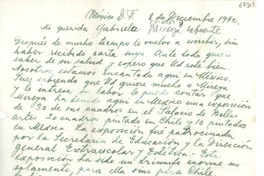 México D.F. 2 de Diciembre 1942.
Mi querida Gabriela
Mireya Lafuente
Después de mucho tiempo le vuelvo a escribir, sin
haber recibido carta suya. Ante todo quiero
saber de su salud y espero que Ud esté bien
Nosotros estamos encantados aquí en México.
Pues sabiendo que Ud quiere mucho a Mireya
y se interesa en su labor, le puedo contar que
Mireya ha tenido aquí en México una exposición
de 90 de sus cuadros en el Palacio de Bellas
Artes 80 cuadros pintados en Chile y 10 pintados
en México. La exposición fué patrocinada
por la Secretaría de Educación y la Dirección
general Extraescolar y Estética. Esta
Exposición ha sido un triunfo enorme no
solamente para ella sino para Chile